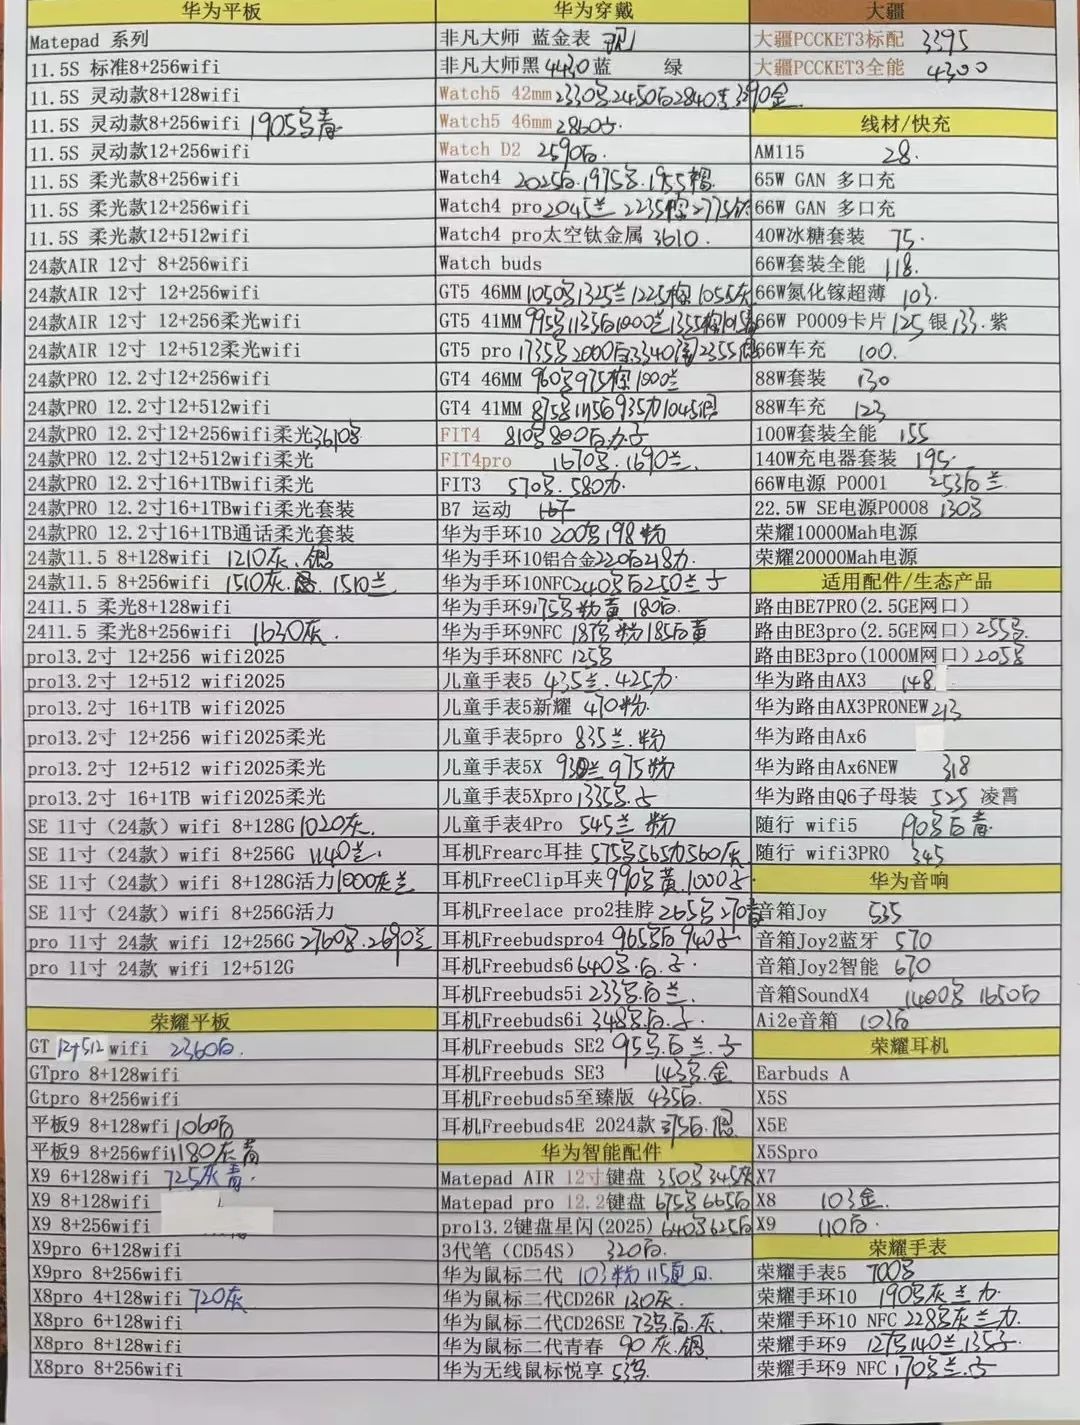 华为平板
Matepad 系列
11.5S 标准8+256wifi
11.5S 灵动款8+128wifi
11.5S 灵动款8+256wifi 1905
11.5S 灵动款12+256wifi
11.5S 柔光款8+256wifi
11.5S 柔光款12+256wifi
11.5S 柔光款12+512wifi
24款AIR 12寸 8+256wifi
24款AIR 12寸 12+256wifi
24款AIR 12寸 12+256柔光wifi
24款AIR 12寸 12+512柔光wifi
24款PRO 12.2寸12+256wifi
24款PRO 12.2寸12+512wifi
24款PRO 12.2寸12+256wifi柔光3610
24款PRO 12.2寸12+512wifi柔光
24款PRO 12.2寸16+1TBwifi柔光
24款PRO 12.2寸16+1TBwifi柔光套装
24款PRO 12.2寸16+1TB通话柔光套装
24款11.5 8+128wifi 1210灰.
24款11.5 8+256wifi 1510灰. 1510兰
2411.5 柔光8+128wifi
2411.5 柔光8+256wifi 1630灰.
pro13.2寸 12+256 wifi2025
pro13.2寸 12+512 wifi2025
pro13.2寸 16+1TB wifi2025
pro13.2寸 12+256 wifi2025柔光
pro13.2寸 12+512 wifi2025柔光
pro13.2寸 16+1TB wifi2025柔光
SE 11寸（24款）wifi 8+128G 1020灰.
SE 11寸（24款）wifi 8+256G 1140兰.
SE 11寸（24款）wifi 8+128G活力1000灰兰
SE 11寸（24款）wifi 8+256G活力
pro 11寸 24款 wifi 12+256G 2760 2690兰
pro 11寸 24款 wifi 12+512G
荣耀平板
GT 12+512 wifi 2360白.
GTpro 8+128wifi
Gtpro 8+256wifi
平板9 8+128wfi 1060白
平板9 8+256wfi 1180灰青
X9 6+128wifi 725灰青.
X9 8+128wifi
X9 8+256wifi
X9pro 6+128wifi
X9pro 8+256wifi
X8pro 4+128wifi 720灰
X8pro 6+128wifi
X8pro 8+128wifi
X8pro 8+256wifi
华为穿戴
非凡大师 蓝金表
非凡大师黑4430蓝 绿
Watch5 42mm 2330 2450白2840 金.
Watch5 46mm 2860
Watch D2 2590白.
Watch4 2025白.1975 1955棕.
Watch4 pro 2045兰 2235棕2775
Watch4 pro太空钛金属 3610.
Watch buds
GT5 46MM 1050 1325兰1225棕1055灰
GT5 41MM 995 1135白1000兰1355棕
GT5 pro 1735 2000白 2355
GT4 46MM 960 975棕1000兰
GT4 41MM 875 935 1045
FIT4 810 800白.
FIT4pro 1670 .1690兰.
FIT3 570 .580
B7 运动
华为手环10 200 198粉
华为手环10铝合金220白218
华为手环10NFC240 白250兰
华为手环9175 粉黄 180白.
华为手环9NFC 187 粉185白黄
华为手环8NFC 125
儿童手表5 435兰.425
儿童手表5新耀 470粉.
儿童手表5pro 835兰.粉
儿童手表5X 930兰975粉
儿童手表5Xpro 1335
儿童手表4Pro 545兰 粉
耳机Frearc耳挂 575 565 560灰
耳机FreeClip耳夹 990 黄.1000
耳机Freelace pro2挂脖 265 270青
耳机Freebudspro4 965 白 940
耳机Freebuds6 640 .白.
耳机Freebuds5i 233 .白兰.
耳机Freebuds6i 348 .白.
耳机Freebuds SE2 95 .白兰.
耳机Freebuds SE3 143 .金
耳机Freebuds5至臻版 435白.
耳机Freebuds4E 2024款 375白.
华为智能配件
Matepad AIR 12寸键盘 350 345灰
Matepad pro 12.2键盘 675 665白
pro13.2键盘星闪(2025) 640 625白
3代笔（CD54S） 320白.
华为鼠标二代 103粉 115
华为鼠标二代CD26R 130灰.
华为鼠标二代CD26SE 73 .白.灰.
华为鼠标二代青春 90 灰.
华为无线鼠标悦享 53
大疆
大疆PCCKET3标配 3395
大疆PCCKET3全能 4300
线材/快充
AM115 28.
65W GAN 多口充
66W GAN 多口充
40W冰糖套装 75.
66W套装全能 118.
66W氮化镓超薄 103.
66W P0009卡片 125 银 133.紫
66W车充 100.
88W套装 130
88W车充 123
100W套装全能 155
140W充电器套装 195.
66W电源 P0001 253白兰
22.5W SE电源P0008 130
荣耀10000Mah电源
荣耀20000Mah电源
适用配件/生态产品
路由BE7PRO(2.5GE网口)
路由BE3pro(2.5GE网口) 255
路由BE3pro(1000M网口) 205
华为路由AX3 148
华为路由AX3PRONEW 213
华为路由Ax6
华为路由Ax6NEW 318
华为路由Q6子母装 525 凌霄
随行 wifi5 190 白青
随行 wifi3PRO 345
华为音响
音箱Joy 535
音箱Joy2蓝牙 570
音箱Joy2智能 670
音箱SoundX4 1400 1650白
Ai2e音箱 103白
荣耀耳机
Earbuds A
X5S
X5E
X5Spro
X7
X8 103金.
X9 110白.
荣耀手表
荣耀手表5 700
荣耀手环10 190 灰兰
荣耀手环10 NFC 228 灰兰
荣耀手环9 127 140兰.135
荣耀手环9 NFC 170 兰.